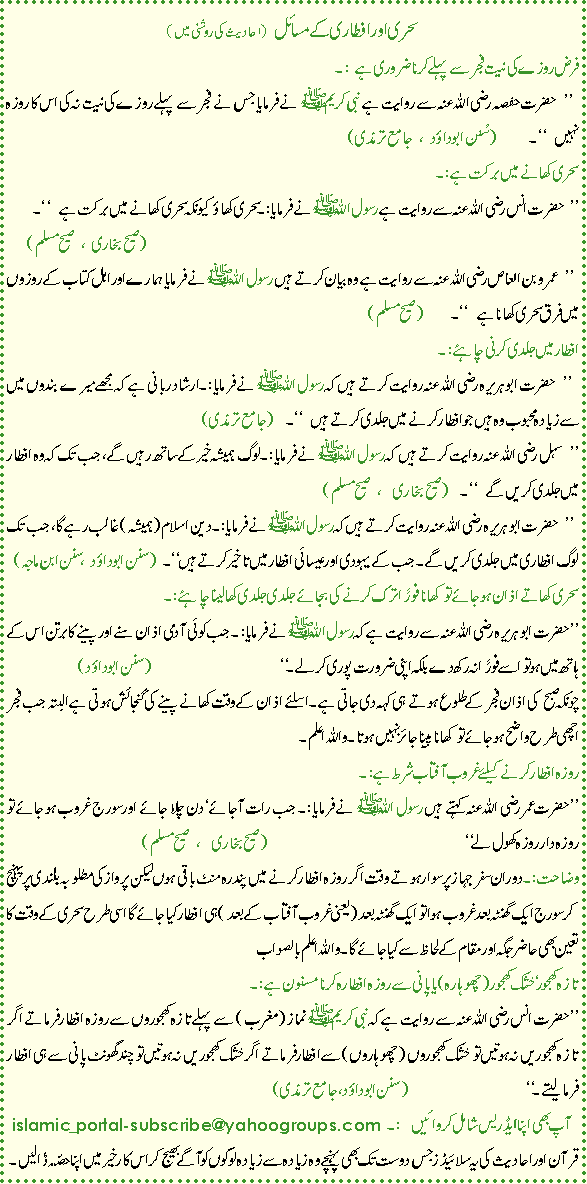 سحری اور افطاری کے مسائل (احادیث کی روشنی میں)
فرض روزے کی نیت فجر سے پہلے کرنا ضروری ہے :۔
’’ حضرت حفصہ رضی اللہ عنہ سے روایت ہے نبی کریم ﷺ نے فرمایا جس نے فجر سے پہلے روزے کی نیت نہ کی اس کا روزہ
نہیں ‘‘۔ (سُنن ابوداؤد ، جامع ترمذی)
سحری کھانے میں برکت ہے:۔
’’ حضرت انس رضی اللہ عنہ سے روایت ہے رسول اللہ ﷺ نے فرمایا:۔ سحری کھاؤ کیونکہ سحری کھانے میں برکت ہے ‘‘۔
(صحیح بخاری ، صحیح مسلم)
’’ عمرو بن العاص رضی اللہ عنہ سے روایت ہے وہ بیان کرتے ہیں رسول اللہ ﷺ نے فرمایا ہمارے اور اہل کتاب کے روزوں
میں فرق سحری کھانا ہے ‘‘۔ (صحیح مسلم)
افطار میں جلدی کرنی چاہئے:۔
’’ حضرت ابو ہریرہ رضی اللہ عنہ روایت کرتے ہیں کہ رسول اللہ ﷺ نے فرمایا:۔ ارشاد ربانی ہے کہ مجھے میرے بندوں میں
سے زیادہ محبوب وہ ہیں جو افطار کرنے میں جلدی کرتے ہیں ‘‘۔ (جامع ترمذی)
’’ سہل رضی اللہ عنہ روایت کرتے ہیں کہ رسول اللہ ﷺ نے فرمایا:۔ لوگ ہمیشہ خیر کے ساتھ رہیں گے، جب تک کہ وہ افطار
میں جلدی کریں گے ‘‘۔ (صحیح بخاری ، صحیح مسلم)
’’ حضرت ابو ہریرہ رضی اللہ عنہ روایت کرتے ہیں کہ رسول اللہ ﷺ نے فرمایا:۔ دین اسلام (ہمیشہ) غالب رہے گا، جب تک
لوگ افطاری میں جلدی کریں گے۔ جب کے یہودی اور عیسائی افطار میں تاخیر کرتے ہیں‘‘۔ (سنن ابوداؤد ، سنن ابن ماجہ)
سحری کھاتے اذان ہو جائے تو کھانا فوراً ترک کرنے کی بجائے جلدی جلدی کھا لینا چاہئے:۔
’’حضرت ابو ہریرہ رضی اللہ عنہ سے روایت ہے کہ رسول اللہ ﷺ نے فرمایا:۔ جب کوئی آدمی اذان سنے اور پینے کا برتن اس کے
ہاتھ میں ہو تو اسے فوراً نہ رکھ دے بلکہ اپنی ضرورت پوری کر لے۔‘‘ (سنن ابوداؤد)
چونکہ صبح کی اذان فجر کے طلوع ہوتے ہی کہہ دی جاتی ہے۔ اسلئے اذان کے وقت کھانے پینے کی گنجائش ہوتی ہے البتہ جب فجر
اچھی طرح واضح ہو جائے تو کھانا پینا جائز نہیں ہوتا۔ واللہ اعلم۔
روزہ افطار کرنے کیلئے غروب آفتاب شرط ہے:۔
’’حضرت عمر رضی اللہ عنہ کہتے ہیں رسول اللہ ﷺ نے فرمایا:۔ جب رات آ جائے‘ دن چلا جائے اور سورج غروب ہو جائے تو
روزہ دار روزہ کھول لے‘‘ (صحیح بخاری ، صحیح مسلم)
وضاحت:۔ دوران سفر جہاز پر سوار ہوتے وقت اگر روزہ افطار کرنے میں پندرہ منٹ باقی ہوں لیکن پرواز کی مطلوبہ بلندی پر پہنچ
کر سورج ایک گھنٹہ بعد غروب ہوا تو ایک گھنٹہ بعد (یعنی غروب آفتاب کے بعد) ہی افطار کیا جائے گا اسی طرح سحری کے وقت کا
تعین بھی حاضر جگہ اور مقام کے لحاظ سے کیا جائے گا۔ واللہ اعلم بالصواب
تازہ کھجور‘ خشک کھجور (چھوہارہ) یا پانی سے روزہ افطار ہ کرنا مسنون ہے:۔
’’حضرت انس رضی اللہ عنہ سے روایت ہے کہ نبی کریم ﷺ نماز (مغرب) سے پہلے تازہ کھجوروں سے روزہ افطار فرماتے اگر
تازہ کھجوریں نہ ہوتیں تو خشک کھجوروں (چھوہاروں) سے افطار فرماتے اگر خشک کھجوریں نہ ہوتیں تو چند گھونٹ پانی سے ہی افطار
فرما لیتے۔‘‘ (سنن ابوداؤد، جامع ترمذی)
آپ بھی اپنا ایڈریس شامل کروائیں :۔ islamic_portal-subscribe@yahoogroups.com
قرآن اور احادیث کی یہ سلائیڈز جس دوست تک بھی پہنچے وہ زیادہ سے زیادہ لوگوں کو آگے بھیج کر اس کار خیر میں اپنا حصّہ ڈالیں۔